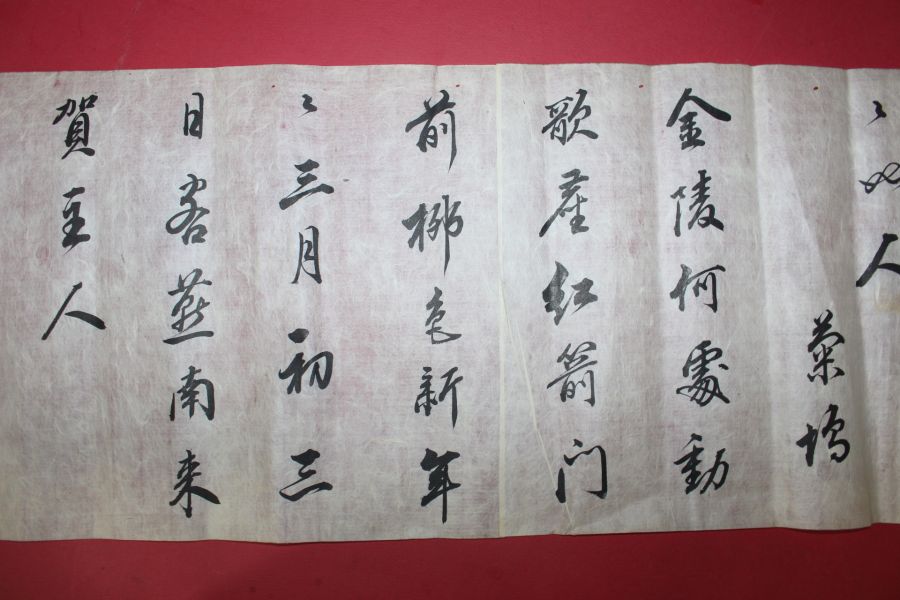 〻人
菊塢
金陵何處動
歌塵紅箭门
前柳色新年
〻三月初三
日客燕南来
賀主人